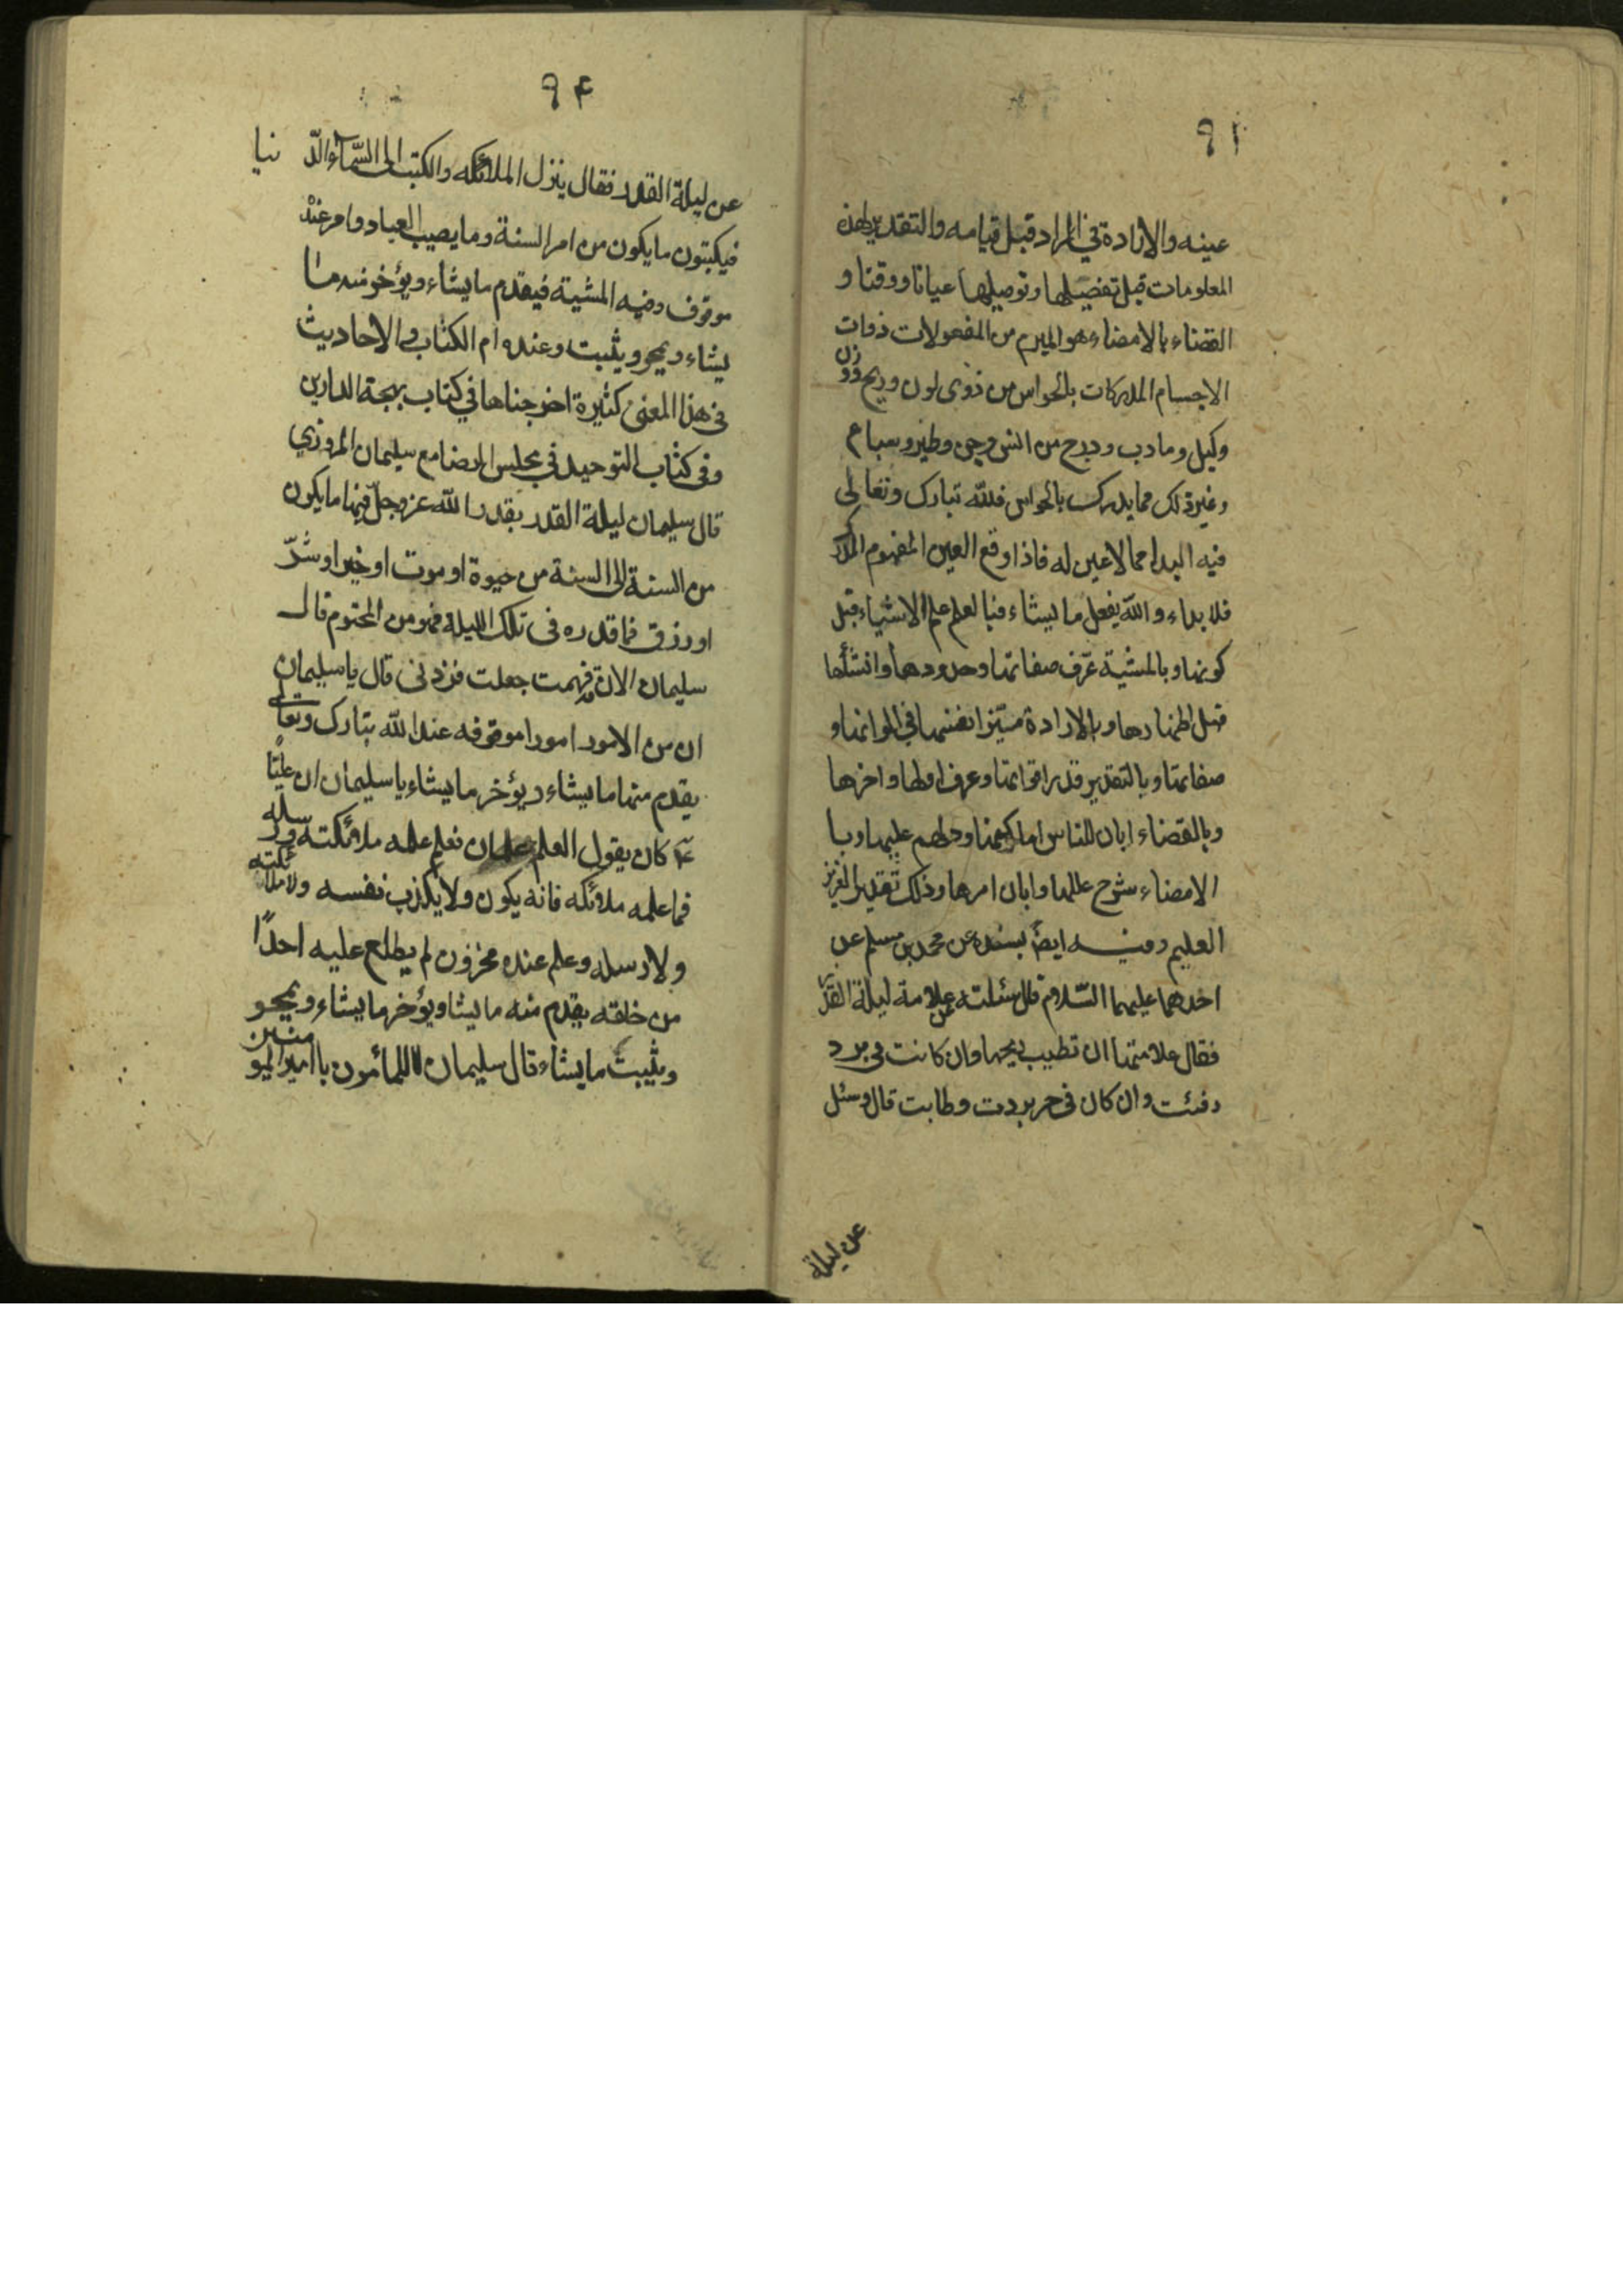 ٩١
عينه والارادة في المراد قبل قيامه والتقدير لهذه
المعلومات قبل تفصيلها وتوصيلها عيانا ووقتا و
القضاء بالامضاء هو المبرم من المفعولات ذوات
الاجسام المدركات بالحواس من ذوى لون وريح ووزن
وكيل وما دب ودرج من انس وجن وطير وسباع
وغير ذلك مما يدرك بالحواس فلله تبارك وتعالى
فيه البداء مما لاعين له فاذا وقع العين المفهوم المدرك
فلا بداء والله يفعل ما يشاء فبالعلم علم الاشياء قبل
كونها وبالمشية عرّف صفاتها وحدودها وانشأها
قبل اظهارها وبالارادة ميّز انفسها في الوانها و
صفاتها وبالتقدير قدر اقواتها وعرف اولها واخرها
وبالقضاء ابان للناس اماكنها ودلهم عليها وبا
لامضاء شرح عللها وابان امرها وذلك تقدير العزيز
العليم وفيه ايضاً بسنده عن محمد بن مسلم عن
احدهما عليهما السّلام قال سئلته عن علامة ليلة القدر
فقال علامتها ان تطيب ريحها وان كانت في برد
دفئت وان كان في حر بردت وطابت قال وسئل
عن ليلة
٩٤
عن ليلة القدر فقال ينزل الملائكه والكتبه الى السّماء الدّنيا
فيكتبون ما يكون من امر السنة وما يصيب العباد وامر عنده
موقوف وفيه المشية فيقدم ما يشاء ويؤخر منه ما
يشاء ويمحو ويثبت وعنده ام الكتاب والاحاديث
في هذا المعنى كثيرة اخرجناها في كتاب بهجة الدارين
وفى كتاب التوحيد في مجلس الرضا مع سليمان المروزي
قال سليمان ليلة القدر يقدر الله عز وجلّ فيها ما يكون
من السنة الى السنة من حيوة او موت او خير او شرّ
او رزق فما قدره فى تلك الليلة فهو من المحتوم قال
سليمان الان قد فهمت جعلت فزدنى قال يا سليمان
ان من الامور امورا موقوفه عند الله تبارك وتعالى
يقدم منها ما يشاء ويؤخر ما يشاء يا سليمان ان عليّاً
ع كان يقول العلم علمان فعلم علمه ملائكته ورسله
فما علمه ملائكه فانه يكون ولا يكذب نفسه ولا ملائكته
ولا رسله وعلم عنده مخزون لم يطلع عليه احداً
من خلقه يقدم منه ما يشاء ويؤخر ما يشاء ويمحو
ويثبت ما يشاء قال سليمان للمأمون يا امير المؤمنين